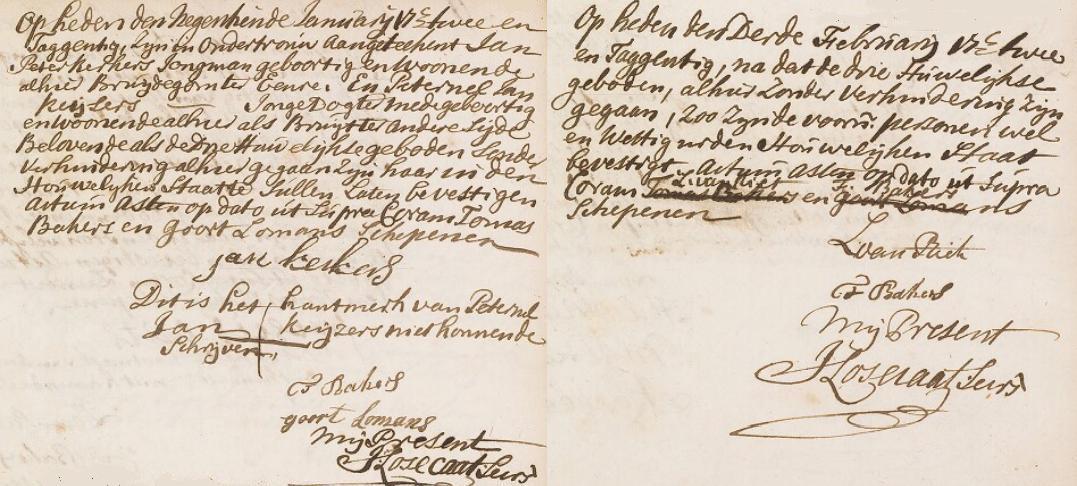 Op heden den Negenhiende January 17c twee en
Taggentig, Zyn in Ondertrouw Aangetekent Jan
Peter Kerkers Jongman geboortig en Woonende
alhier Bruydegom ter Eenre. En Peternel Jan
Keijzers Jonge Dogter mede geboortig
en Woonende alhier als Bruyt ter andere Zyde
Belovende als de drie Houwelykse geboden Zonder
Verhindering alhier gegaan Zyn haar in den
Houwelyken Staat te Sullen Laten bevestigen
Actum Asten op dato ut Supra Coram Tomas
Bakers en goort Lomans Schepenen
jan kerkers
Dit is het hantmerk van Peternel
Jan Keijzers niet konnende
Schryven,
T Bakers
goort Lomans
Mij Present
J Losecaat Secrs
Op heden den Derde February 17c twee
en Taggentig, na dat de drie Huwelykse
geboden, alhier Zonder Verhindering Zyn
gegaan, Zoo Zynde voorn: personen wel
en Wettig in den Houwelyken Staat
bevestigt Actum Asten op dato ut Supra
Coram en
Schepenen
T Bakers
Mij Present
J Losecaat Secrs